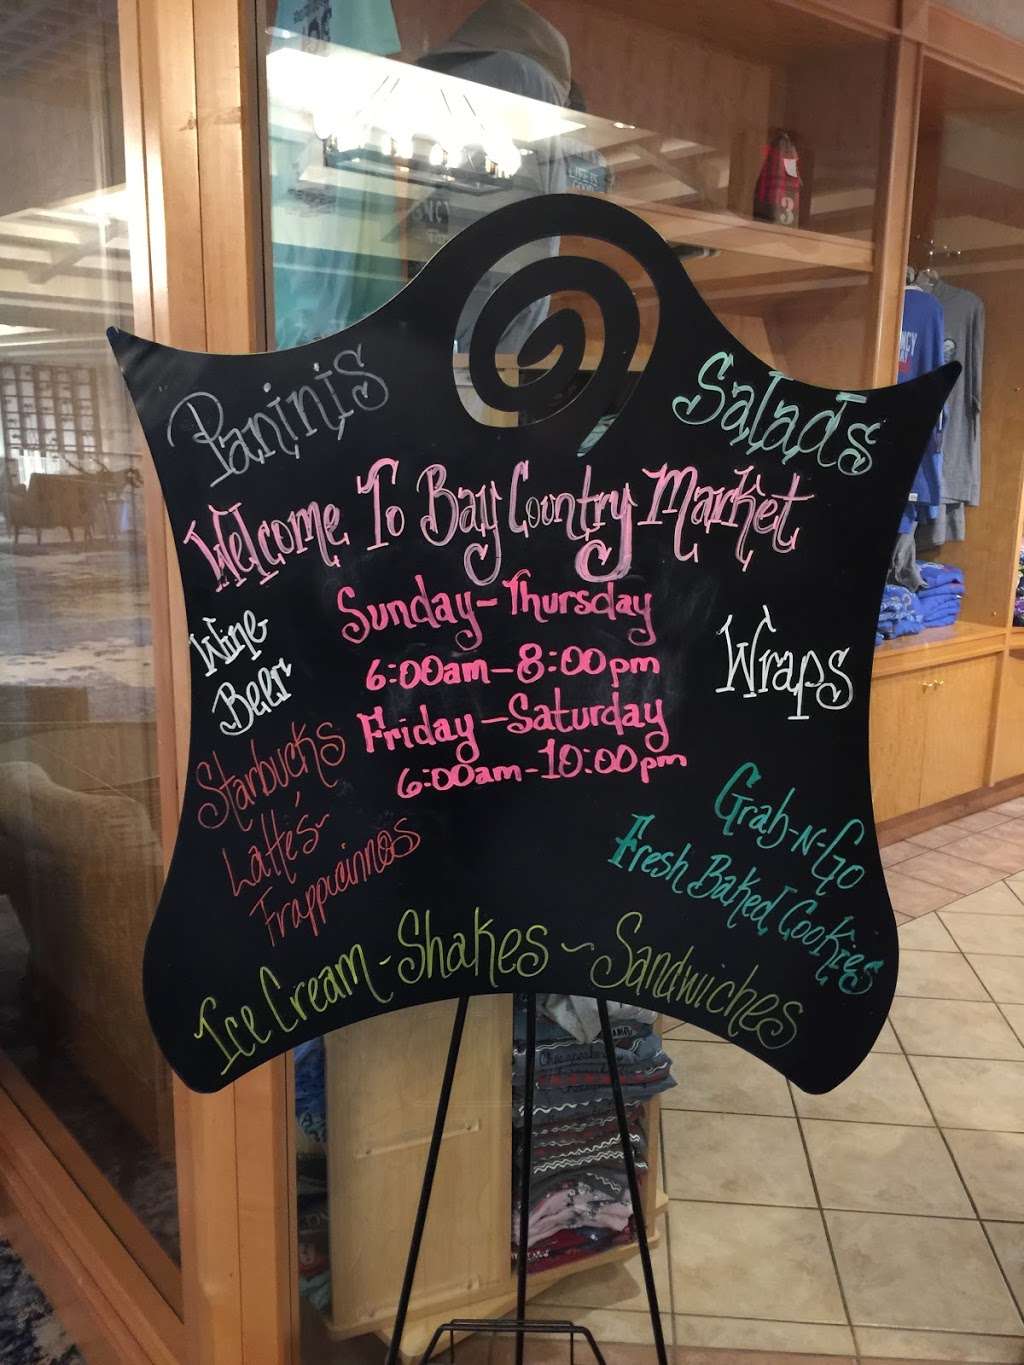 Paninis
Salads
Welcome To Bay Country Market
Sunday-Thursday
6:00am-8:00pm
Friday-Saturday
6:00am-10:00pm
Wine
Beer
Wraps
Starbucks
Latté's~
Frappicinnos
Grab-N-Go
Fresh Baked Cookies
Ice Cream-Shakes~Sandwiches
3